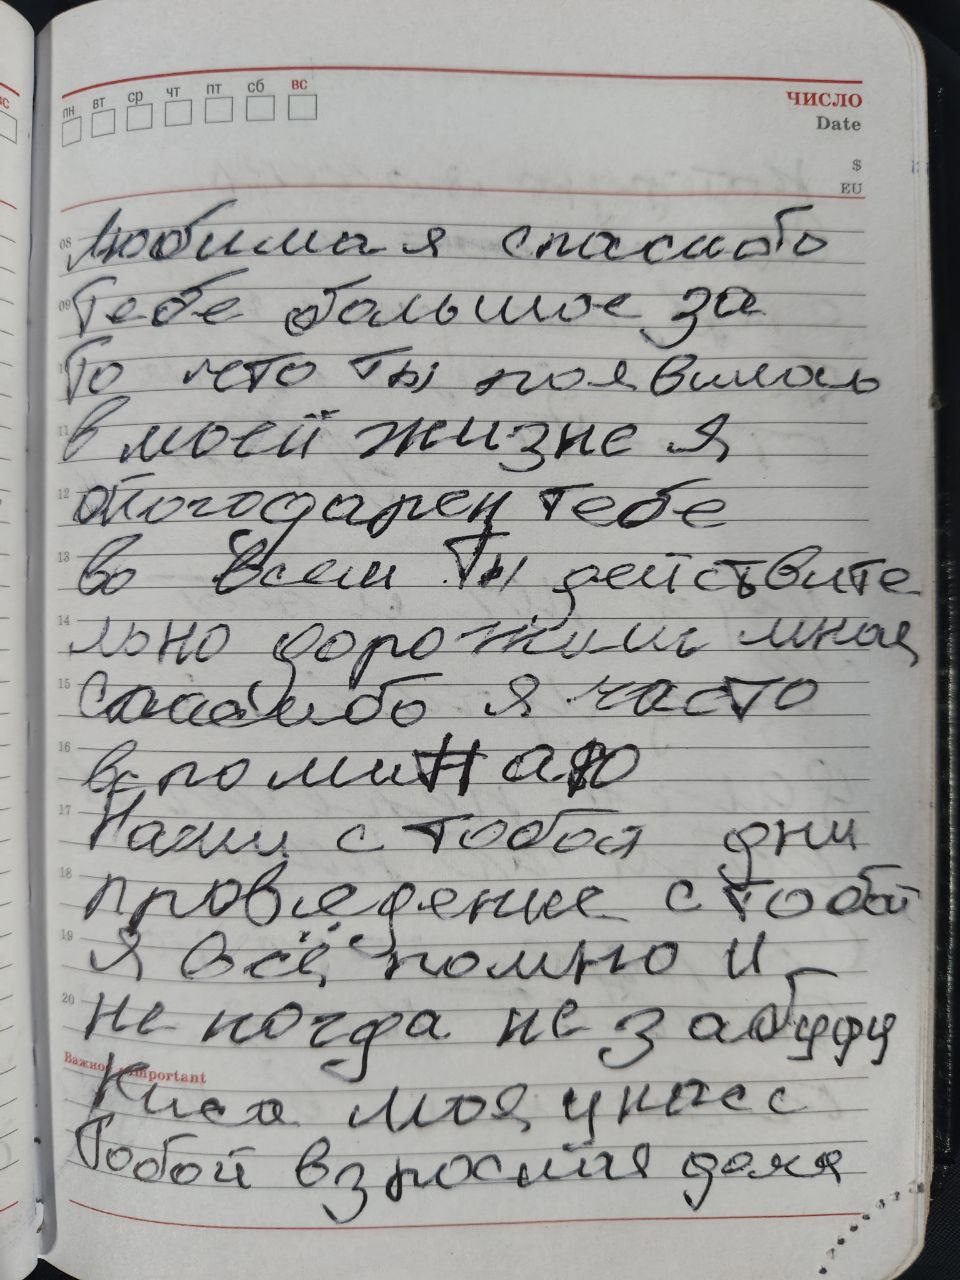 пн вт ср чт пт сб вс
ЧИСЛО
Date
$
EU
08 Любимая спасибо
09 Тебе большое за
То что ты появилась
11 в моей жизне я
12 тебе
13 во всем Ты действите
14 льно дорожиш мной
15 Спасибо я часто
16 вспоминаю
17 Наши с тобоя дни
18 проведение с тобой
19 я всё помню и
20 не когда не забуду
Важно Important
Киса моя у нас с
Тобой взрослая доча